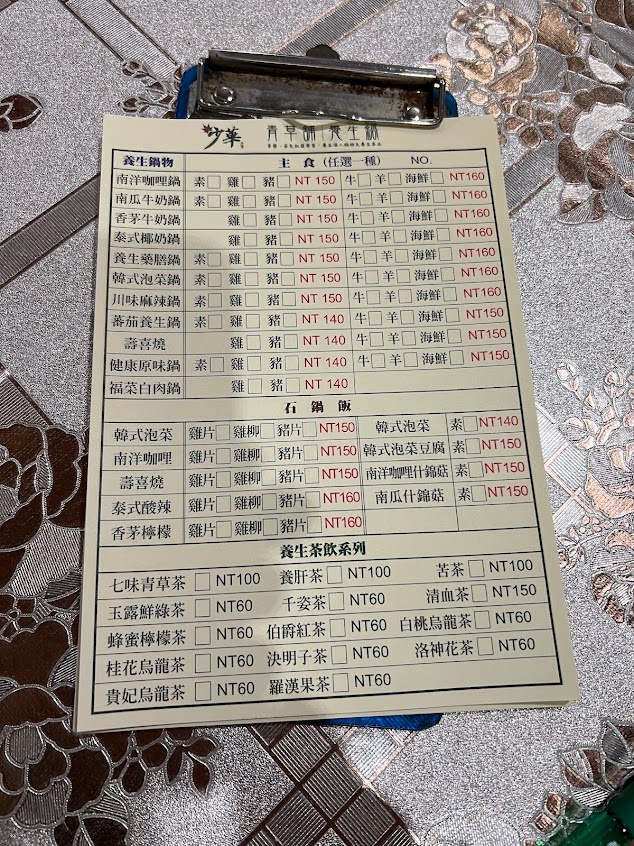 少華 青草舖 養生鍋
養生鍋物 主 食 (任選一種) NO.
南洋咖哩鍋 素□ 雞□ 豬□ NT 150 牛□ 羊□ 海鮮□ NT160
南瓜牛奶鍋 素□ 雞□ 豬□ NT 150 牛□ 羊□ 海鮮□ NT160
香茅牛奶鍋 雞□ 豬□ NT 150 牛□ 羊□ 海鮮□ NT160
泰式椰奶鍋 雞□ 豬□ NT 150 牛□ 羊□ 海鮮□ NT160
養生藥膳鍋 素□ 雞□ 豬□ NT 150 牛□ 羊□ 海鮮□ NT160
韓式泡菜鍋 素□ 雞□ 豬□ NT 150 牛□ 羊□ 海鮮□ NT160
川味麻辣鍋 素□ 雞□ 豬□ NT 150 牛□ 羊□ 海鮮□ NT160
蕃茄養生鍋 素□ 雞□ 豬□ NT 140 牛□ 羊□ 海鮮□ NT150
壽喜燒 雞□ 豬□ NT 140 牛□ 羊□ 海鮮□ NT150
健康原味鍋 素□ 雞□ 豬□ NT 140 牛□ 羊□ 海鮮□ NT150
福菜白肉鍋 雞□ 豬□ NT 140
石 鍋 飯
韓式泡菜 雞片□ 雞柳□ 豬片□ NT150 韓式泡菜 素□ NT140
南洋咖哩 雞片□ 雞柳□ 豬片□ NT150 韓式泡菜豆腐 素□ NT150
壽喜燒 雞片□ 雞柳□ 豬片□ NT150 南洋咖哩什錦菇 素□ NT150
泰式酸辣 雞片□ 雞柳□ 豬片□ NT160 南瓜什錦菇 素□ NT150
香茅檸檬 雞片□ 雞柳□ 豬片□ NT160
養生茶飲系列
七味青草茶 □ NT100 養肝茶□ NT100 苦茶□ NT100
玉露鮮綠茶 □ NT60 千姿茶□ NT60 清血茶□ NT150
蜂蜜檸檬茶 □ NT60 伯爵紅茶□ NT60 白桃烏龍茶□ NT60
桂花烏龍茶 □ NT60 決明子茶□ NT60 洛神花茶□ NT60
貴妃烏龍茶 □ NT60 羅漢果茶□ NT60